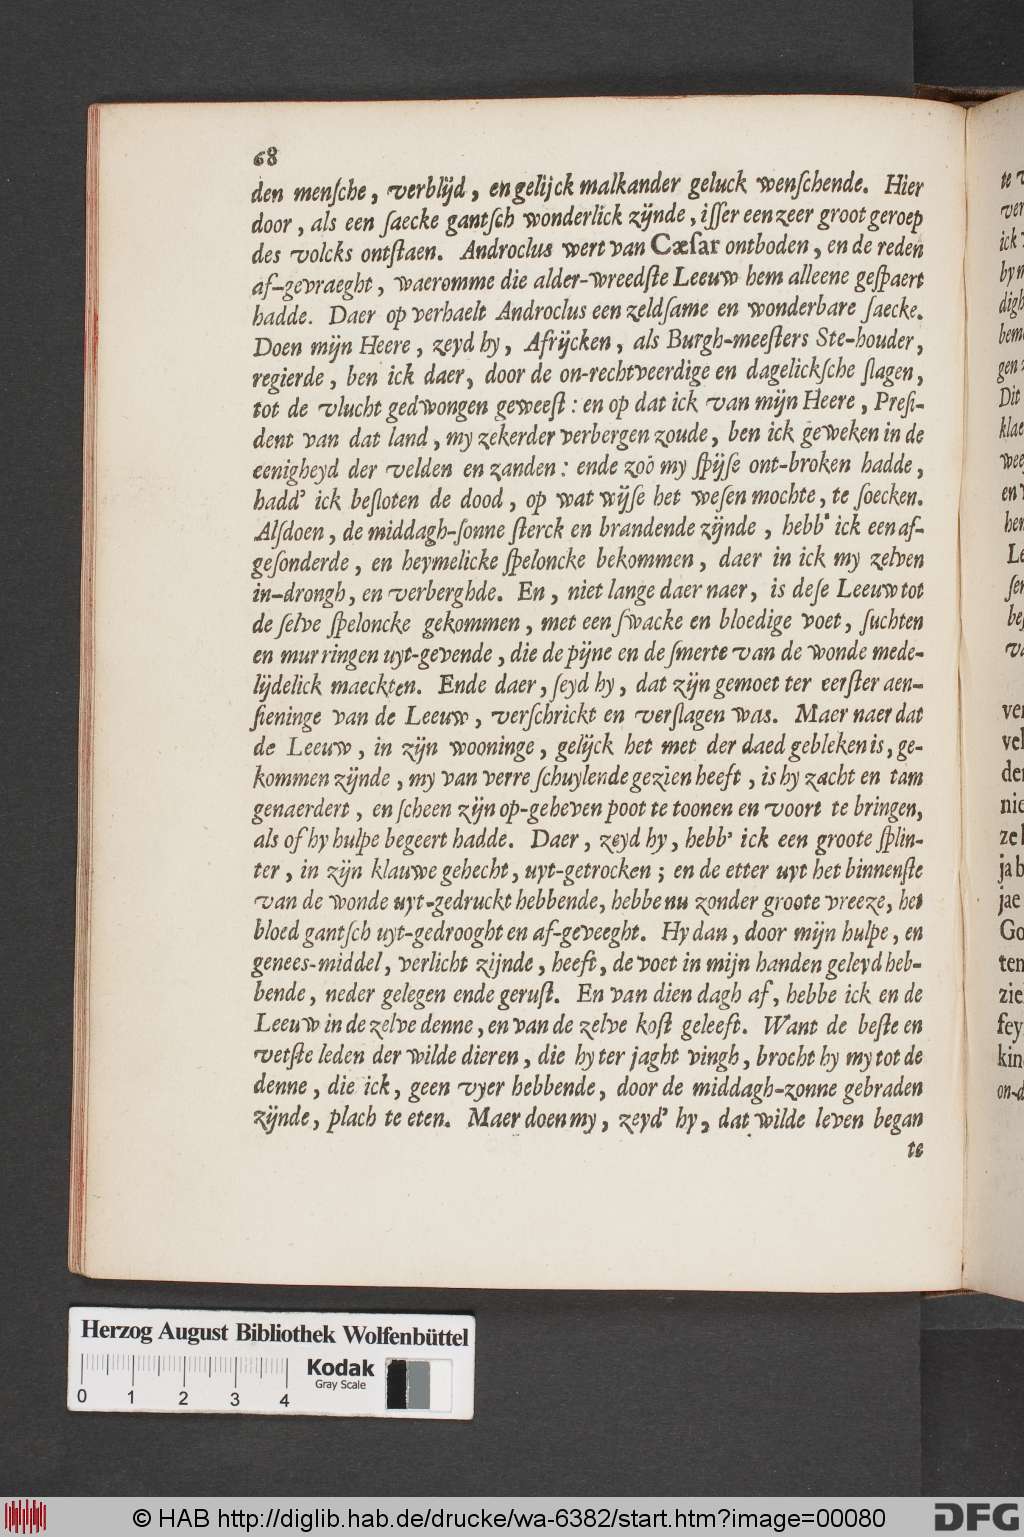 68
den menſche, verblijd, en gelijck malkander geluck wenſchende. Hier
door, als een ſaecke gantſch wonderlick zijnde, iſſer een zeer groot geroep
des volcks ontſtaen. Androclus wert van Cæſar ontboden, en de reden
af-gevraeght, waeromme die alder-wreedſte Leeuw hem alleene geſpaert
hadde. Daer op verhaelt Androclus een zeldſame en wonderbare ſaecke.
Doen mijn Heere, zeyd hy, Afrijcken, als Burgh-meeſters Ste-houder,
regierde, ben ick daer, door de on-rechtveerdige en dagelickſche ſlagen,
tot de vlucht gedwongen geweeſt: en op dat ick van mijn Heere, Preſi-
dent van dat land, my zekerder verbergen zoude, ben ick geweken in de
eenigheyd der velden en zanden: ende zoo my ſpijſe ont-broken hadde,
hadd' ick beſloten de dood, op wat wijſe het weſen mochte, te ſoecken.
Alſdoen, de middagh-ſonne ſterck en brandende zijnde, hebb' ick een af-
geſonderde, en heymelicke ſpeloncke bekommen, daer in ick my zelven
in-drongh, en verberghde. En, niet lange daer naer, is deſe Leeuw tot
de ſelve ſpeloncke gekommen, met een ſwacke en bloedige voet, ſuchten
en murringen uyt-gevende, die de pijne en de ſmerte van de wonde mede-
lijdelick maeckten. Ende daer, ſeyd hy, dat zijn gemoet ter eerſter aen-
ſieninge van de Leeuw, verſchrickt en verſlagen was. Maer naer dat
de Leeuw, in zijn wooninge, gelijck het met der daed gebleken is, ge-
kommen zijnde, my van verre ſchuylende gezien heeft, is hy zacht en tam
genaerdert, en ſcheen zijn op-geheven poot te toonen en voort te bringen,
als of hy hulpe begeert hadde. Daer, zeyd hy, hebb' ick een groote ſplin-
ter, in zijn klauwe gehecht, uyt-getrocken; en de etter uyt het binnenſte
van de wonde uyt-gedruckt hebbende, hebbe nu zonder groote vreeze, het
bloed gantſch uyt-gedrooght en af-geveeght. Hy dan, door mijn hulpe, en
genees-middel, verlicht zijnde, heeft, de voet in mijn handen geleyd heb-
bende, neder gelegen ende geruſt. En van dien dagh af, hebbe ick en de
Leeuw in de zelve denne, en van de zelve koſt geleeft. Want de beſte en
vetſte leden der wilde dieren, die hy ter jaght vingh, brocht hy my tot de
denne, die ick, geen vyer hebbende, door de middagh-zonne gebraden
zijnde, plach te eten. Maer doen my, zeyd' hy, dat wilde leven began
te
Herzog August Bibliothek Wolfenbüttel
0 1 2 3 4
Kodak
Gray Scale
© HAB http://diglib.hab.de/drucke/wa-6382/start.htm?image=00080
DFG